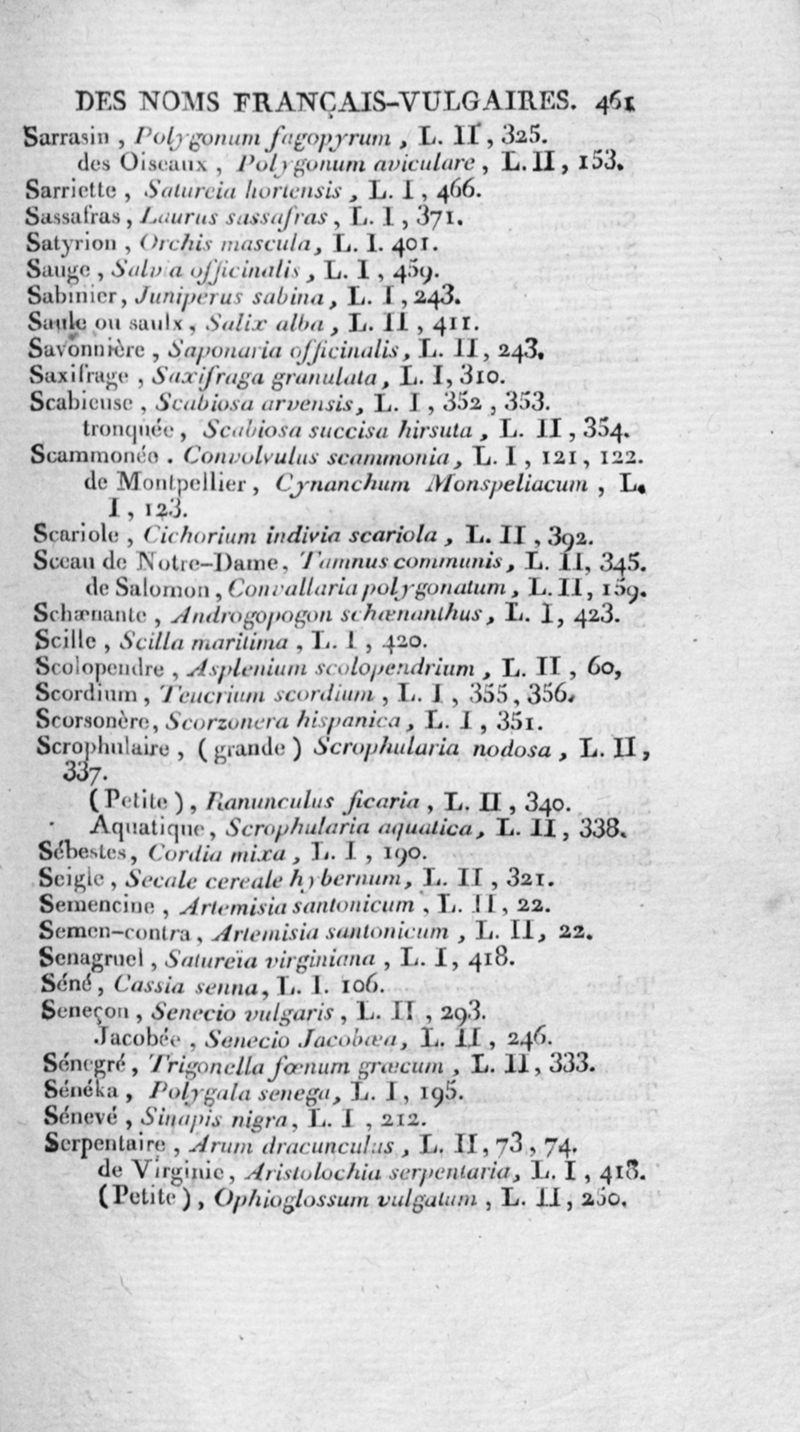 DES NOMS FRANÇAIS-VULGAIRES. 461
Sarrasin , Polygonum fagopyrum , L. II , 325.
des Oiseaux , Polygonum aviculare , L. II , 153.
Sarriette , Satureia hortensis , L. I , 466.
Sassafras , Laurus sassafras , L. I , 371.
Satyrion , Orchis mascula, L. I. 401.
Sauge , Salv a officinalis , L. I , 459.
Sabinier, Juniperus sabina , L. I , 243.
Saule ou saulx , Salix alba , L. II , 411.
Savonnière , Saponaria officinalis, L. II, 243.
Saxifrage , Saxifraga granulata , L. I, 310.
Scabieuse , Scabiosa arvensis, L. I , 352 , 353.
tronquée , Scabiosa succisa hirsuta , L. II , 354.
Scammonée . Convolvulus scammonia, L. I , 121 , 122.
de Montpellier , Cynanchum Monspeliacum , L.
I , 123.
Scariole , Cichorium indivia scariola , L. II , 392.
Sceau de Notre-Dame, Tamnus communis, L. II, 345.
de Salomon , Convallaria polygonatum , L. II, 159.
Schœnante , Androgopogon schœnanthus, L. I, 423.
Scille , Scilla maritima , L. I , 420.
Scolopendre , Asplenium scolopendrium , L. II , 60,
Scordium , Teucrium scordium , L. I , 355, 356.
Scorsonère, Scorzonera hispanica , L. I , 351.
Scrophulaire , ( grande ) Scrophularia nodosa , L. II ,
337.
( Petite ) , Ranunculus ficaria , L. II , 340.
Aquatique , Scrophularia aquatica, L. II , 338.
Sébestes, Cordia mixa , L. I , 190.
Seigle , Secale cereale hybernum, L. II , 321.
Semencine , Artemisia santonicum , L. II , 22.
Semen-contra , Artemisia santonicum , L. II, 22.
Senagruel , Satureïa virginiana , L. I, 418.
Séné , Cassia senna, L. I. 106.
Seneçon , Senecio vulgaris , L. II , 293.
Jacobée , Senecio Jacobæa, L. II , 246.
Sénegré , Trigonella fœnum græcum , L. II, 333.
Sénéka , Polygala senega, L. I, 195.
Sénevé , Sinapis nigra, L. I , 212.
Serpentaire , Arum dracunculus , L. II, 73 , 74.
de Virginie, Aristolochia serpentaria, L. I , 418.
( Petite ) , Ophioglossum vulgatum , L. II , 250.